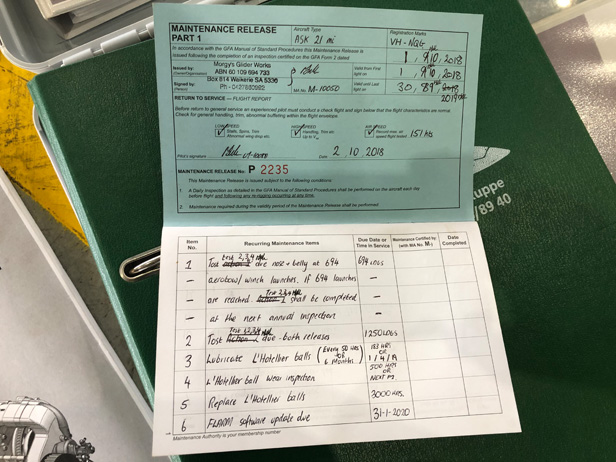 MAINTENANCE RELEASE
PART 1
Aircraft Type
ASK 21 mi
Registration Marks
VH-NQG
In accordance with the GFA Manual of Standard Procedures this Maintenance Release is
issued following the completion of an inspection certified on the GFA Form 2 dated
1, 10, 2018
Issued by:
(Owner/Organisation)
Morgy's Glider Works
ABN 60 109 694 733
Valid from First
flight on
1, 10, 2018
Signed by:
(Person)
Box 814 Waikerie SA 5336
Ph - 0427860992
MA No. M-10050
Valid until Last
flight on
30, 9, 2019
RETURN TO SERVICE – FLIGHT REPORT
Before return to general service an experienced pilot must conduct a flight and sign below that the flight characteristics are normal.
Check for general handling, trim, abnormal buffeting within the flight envelope.
LOW SPEED
Stalls, Spins, Trim
Abnormal wing drop etc.
HIGH SPEED
Handling, Trim etc.
Up to
AIR SPEED
Record max. air
speed flight tested
151 kts
Pilot's signature
Date 2.10.2018
MAINTENANCE RELEASE No P 2235
This Maintenance Release is issued subject to the following conditions.
1 A Daily Inspection as detailed in the GFA Manual of Standard Procedures shall be performed on the aircraft each day
before flight and following any re-rigging occurring at any time.
2 Maintenance required during the validity period of this Maintenance Release shall be performed.
uppe
/89 40
Item
No.
Recurring Maintenance Items
Due Date or
Time in Service
Maintenance Certified by
(with MA No. M-)
Date
Completed
test 2,3,4
1 Tost due nose + belly at 694 694 LDGS
– aerotow/winch launches. if 694 launches –
Test 2,3,4
– are reached shall be completed –
– at the next annual inspection –
2 Tost due - both releases 1250 LDGS
3 Lubricate L'Hotellier balls (Every 50 HRS OR 6 Months) 183 HRS
OR
1/4/19
4 L'Hotellier ball wear inspection 500 HRS
OR
5 Replace L'Hotellier balls 3000 HRS.
6 FLARM software update due 31-1-2020
Maintenance Authority is your membership number